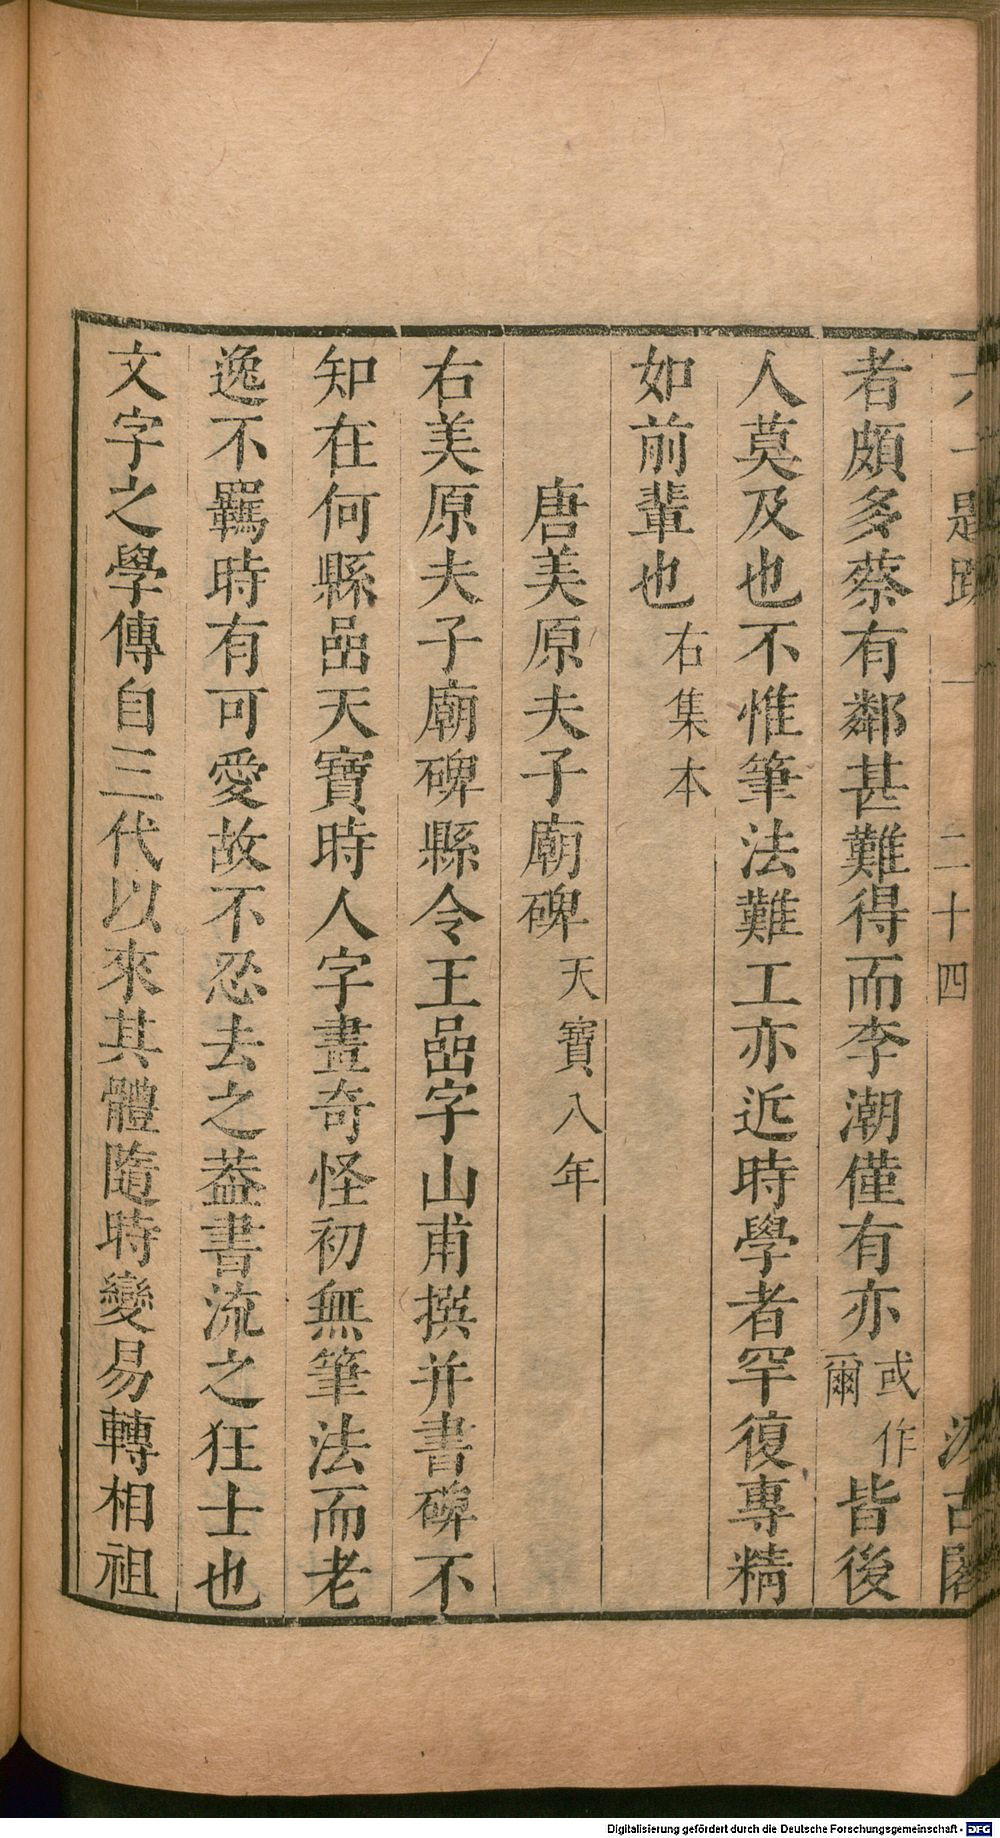 六一題跋 二十四 汲古閣
者頗多蔡有鄰甚難得而李潮僅有亦或作爾皆後
人莫及也不惟筆法難工亦近時學者罕復專精
如前輩也右集本
唐美原夫子廟碑天寶八年
右美原夫子廟碑縣令王嵒字山甫撰并書碑不
知在何縣嵒天寶時人字畫奇怪初無筆法而老
逸不羈時有可愛故不忍去之葢書流之狂士也
文字之學傳自三代以來其體隨時變易轉相祖
Digitalisierung gefördert durch die Deutsche Forschungsgemeinschaft - DFG